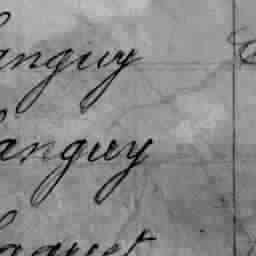 anguy
anguy
aquet